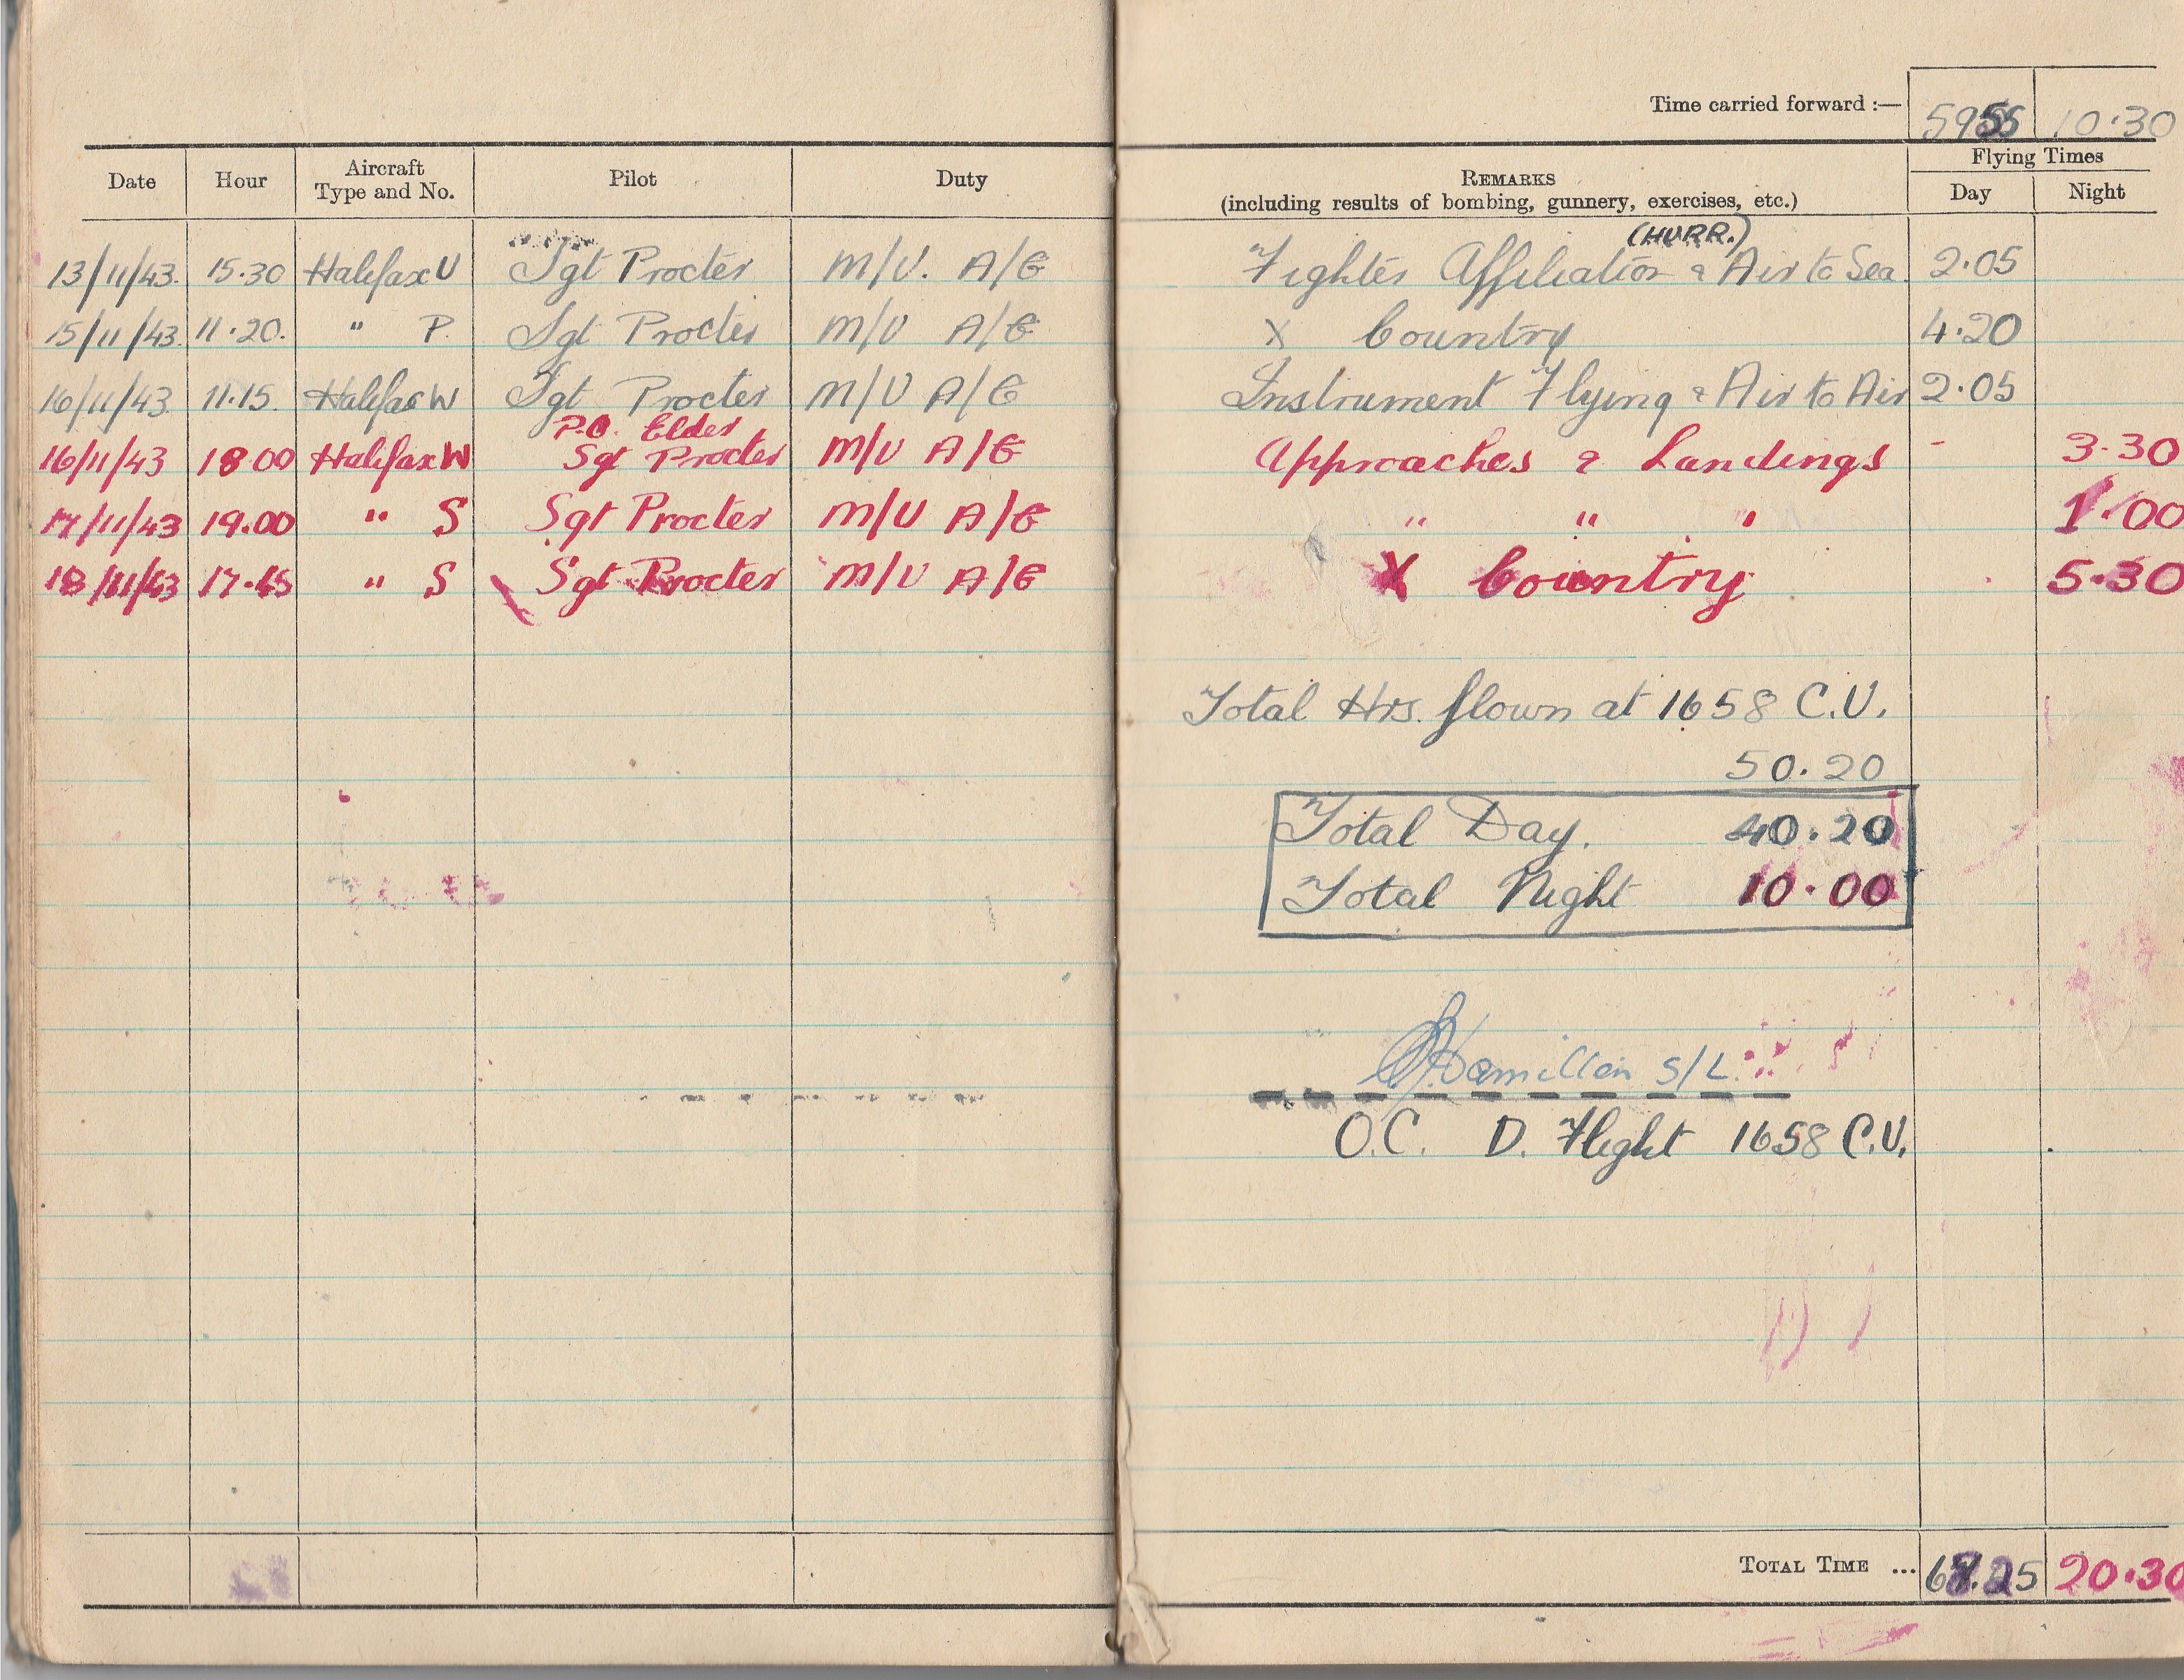 Time carried forward :— 59 55 10.30
Date Hour Aircraft Type and No. Pilot Duty REMARKS (including results of bombing, gunnery, exercises, etc.) Flying Times Day Night
(HURR.)
13/11/43. 15.30 Halifax U Sgt Procter M/U. A/G Fighter Affiliation & Air to Sea 2.05
15/11/43. 11.20. " P. Sgt Procter M/U A/G X Country 4.20
16/11/43. 11.15. Halifax W Sgt Procter M/U A/G Instrument Flying & Air to Air 2.05
P.O. Elder
16/11/43 18.00 Halifax W Sgt Procter M/U A/G Approaches & Landings - 3.30
17/11/43 19.00 " S Sgt Procter M/U A/G " " " 1.00
18/11/43 17.45 " S Sgt Procter M/U A/G X Country 5.30
Total Hrs. flown at 1658 C.U.
50.20
Total Day. 40.20
Total Night 10.00
Hamilton S/L.
O.C. D. Flight 1658 C.U.
TOTAL TIME ... 20.30